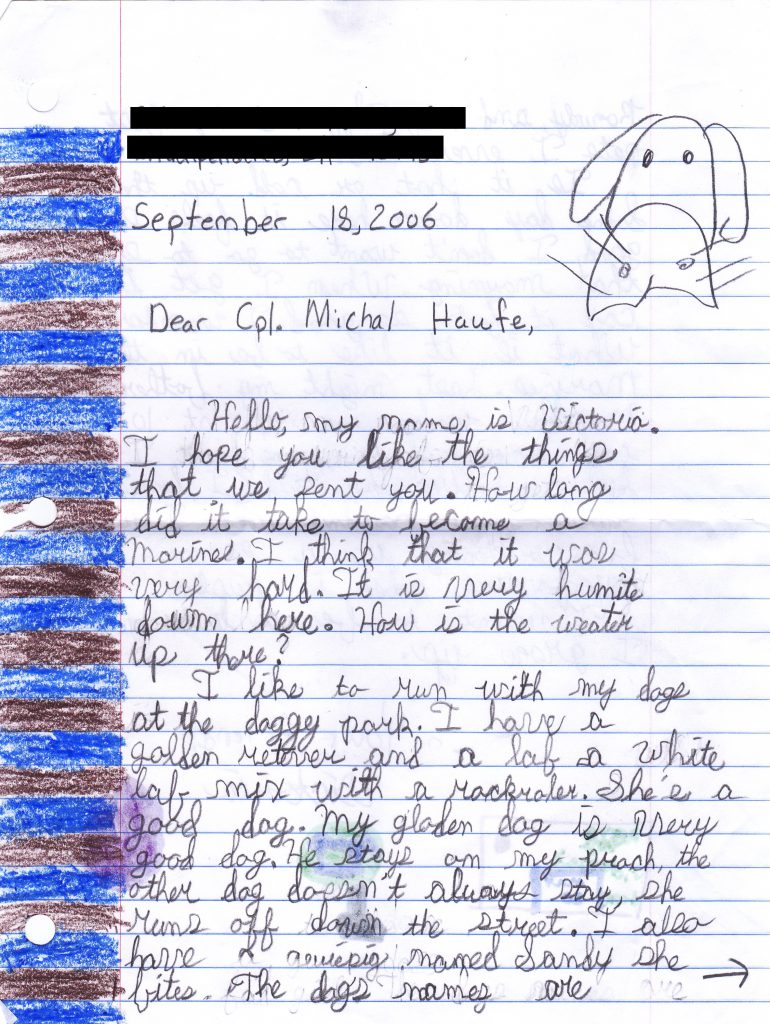 September 18, 2006
Dear Cpl. Michal Haufe,
Hello, my name is Victoria.
I hope you like the things
that we sent you. How long
did it take to become a
marine. I think that it was
very hard. It is very humite
down here. How is the weater
up there?
I like to run with my dogs
at the doggy park. I have a
golden retover and a lab a white
lab mix with a rackroter. She's a
good dog. My gloden dog is very
good dog. He stays on my proch, the
other dog doesn't always stay, she
runs off down the street. I also
have a genièpig named Sandy she
bites. The dogs names are